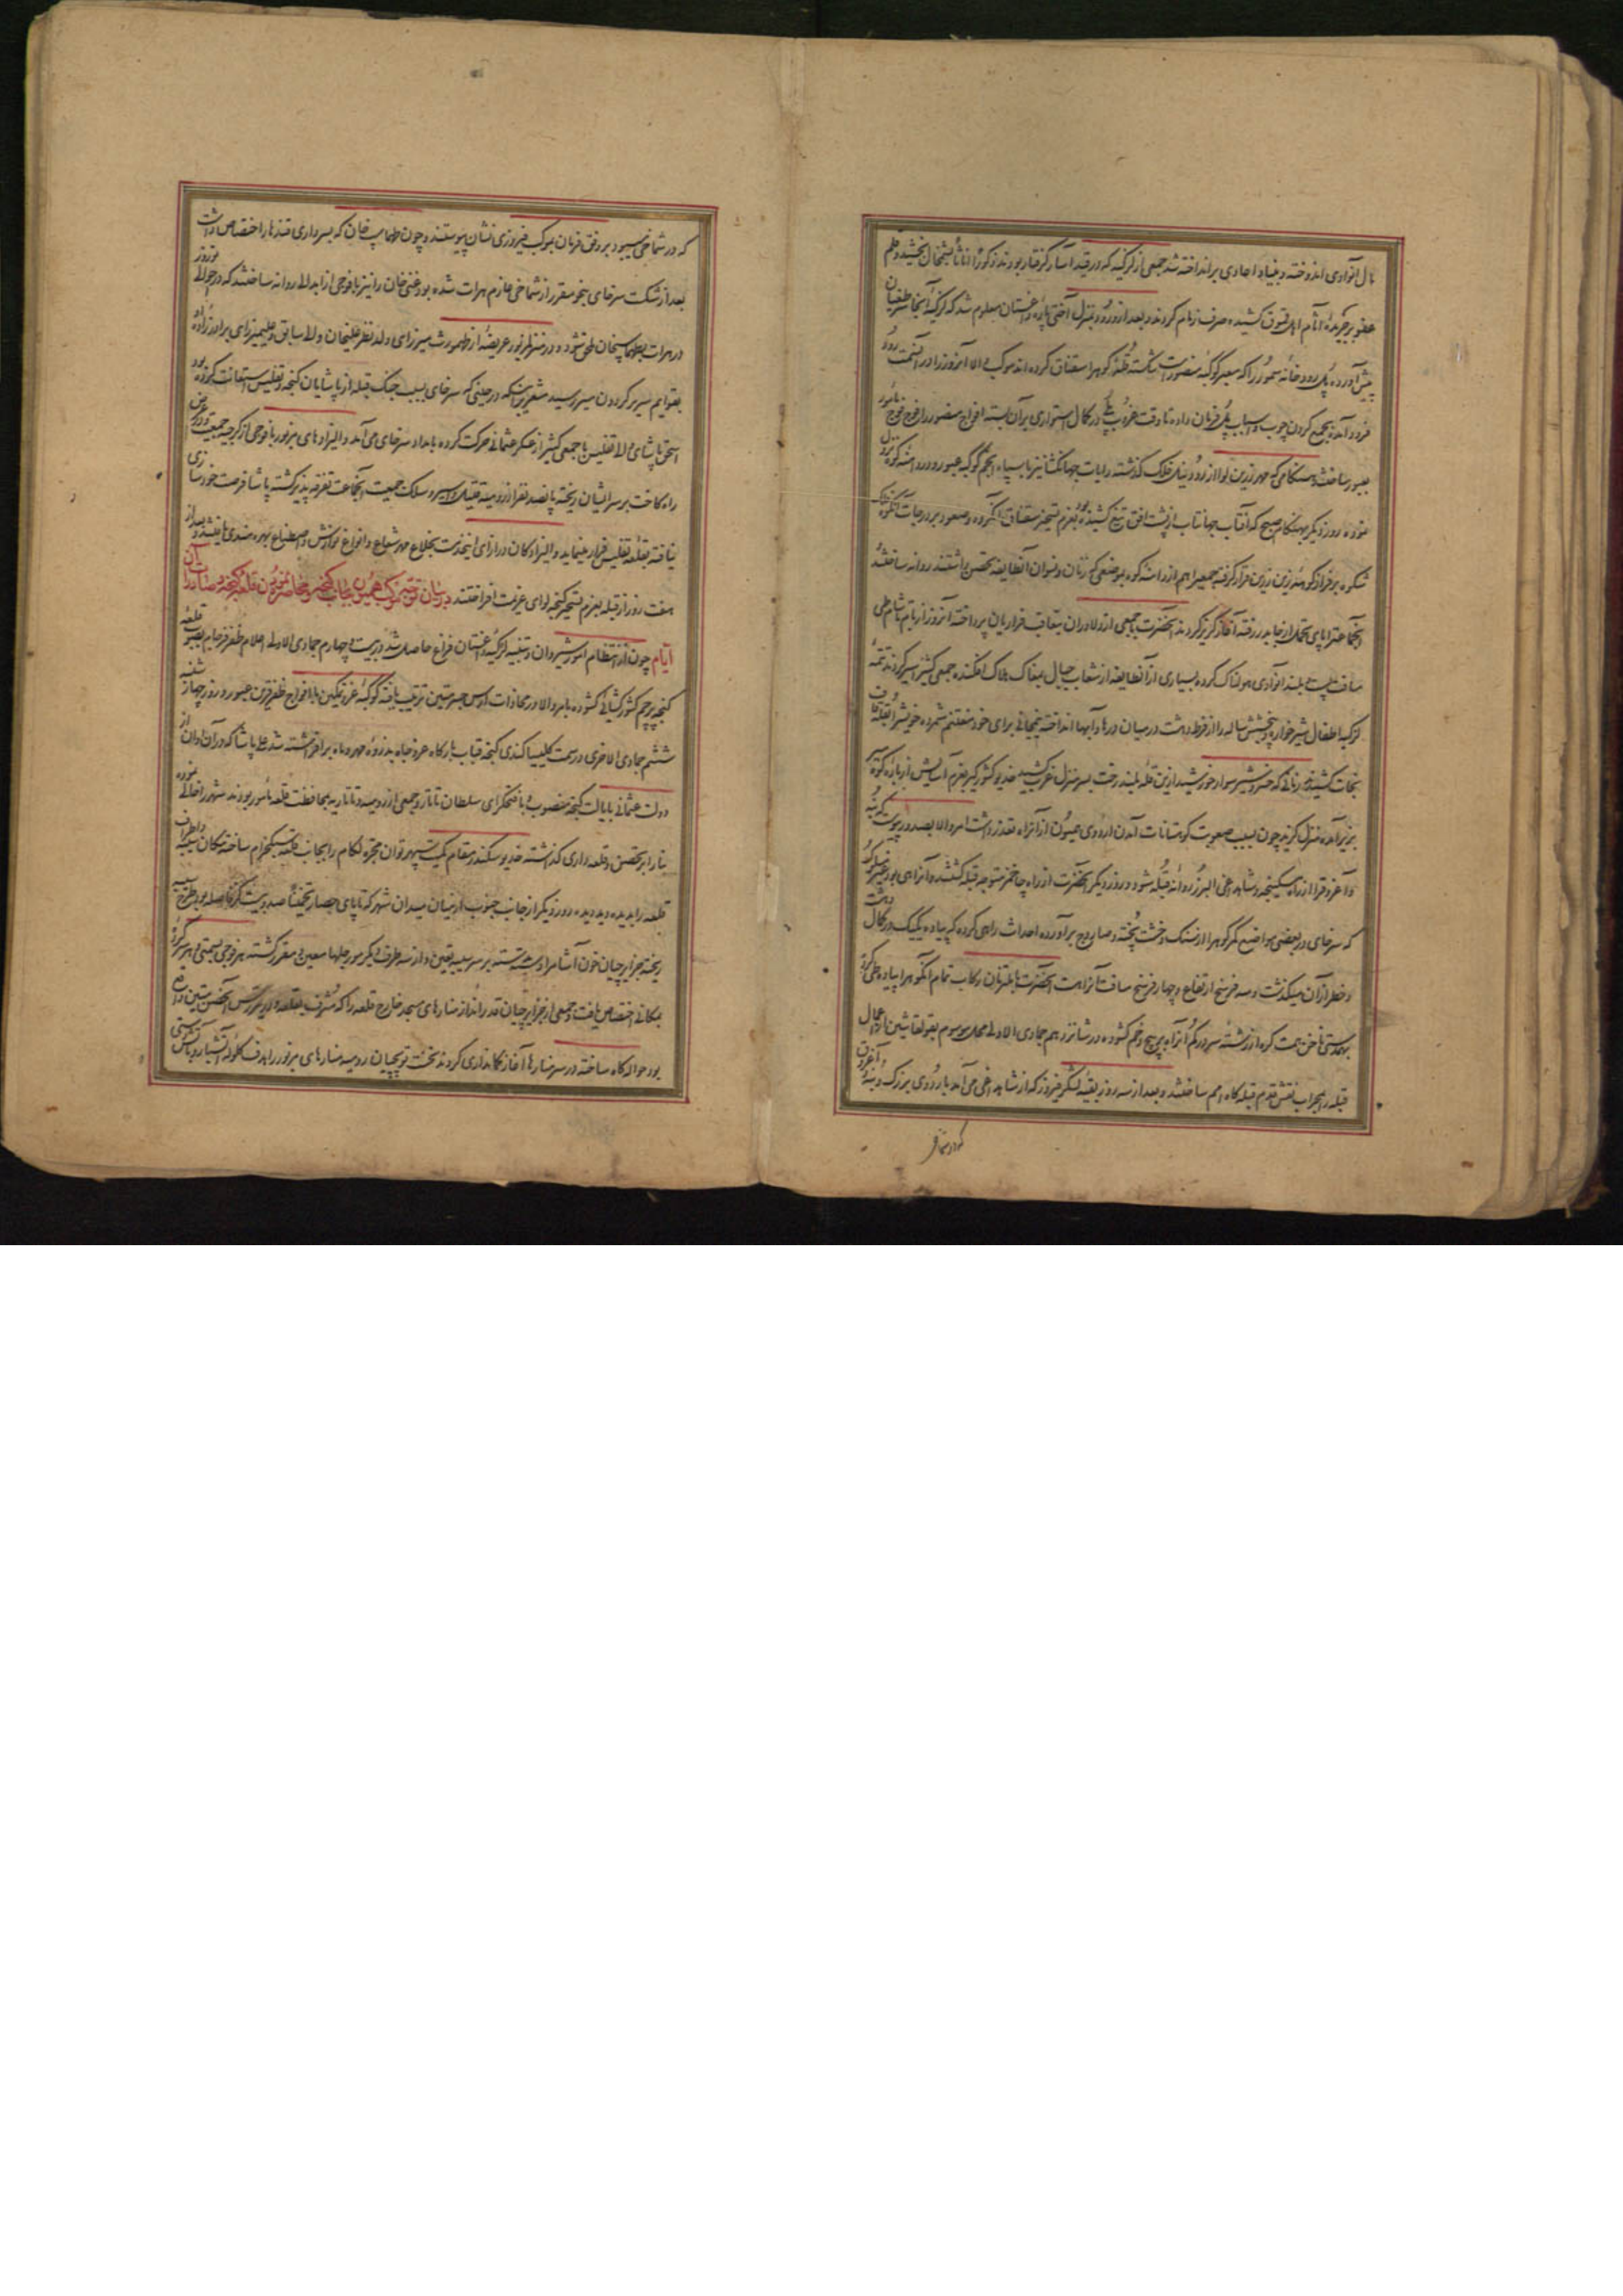 مال آنوادی اندوخته و بنیاد اجادی برانداخته شد جمعی از لزکیه که در قید اسار گرفتار بودند ذکورا و اناثا بشمخال بخشید و قلم
عفو بر جریدهٔ آثام اهل قموق کشیده صرف زمام کردند و بعد از ورود بمنزل آختی پاره داغستان معلوم شد که لزکیهٔ آنجا سر طغیان
پیش آورده پل رودخانه سمور را که معبر کوکبه منصور است شکسته قلهٔ کوه را سقناق کرده اند موکب والا آنروز در آن سمت رود
فرود آمده بجمع کردن چوب و اسباب پل فرمان داده تا وقت غروب پلی در کمال استواری بر آن بسته افواج منصور را فوج فوج مامور
بعبور ساختند و هنگامی که مهر زرین لوا از رود نیل فلک گذشته رایات جهانگشا نیز با سپاه انجم کوکبه عبور و در دامنه کوه نزول
نموده روز دیگر هنگام صبح که آفتاب جهانتاب از پشت افق تیغ کشیده بود بعزم تسخیر سقناق آن گروه و صعود بر درجات آن کوه
شکوه بر فراز کوه زین زرین قرار گرفته جمعی را هم از دامنه کوه بموضعی که زنان و نسوان آنطایفه تحصن داشتند روانه ساختند
آنجماعت را پای تحمل از جا بدر رفته آغاز گریز کردند آنحضرت با جمعی از دلاوران بتعاقب فراریان پرداخته آنروز از بام تا شام طی
مسافت پست و بلند آنوادی هولناک کرده بسیاری از آنطایفه از شعاب جبال بمغاک هلاک افکنده جمعی کثیر اسیر کردند تتمهٔ
لزکیه اطفال شیرخواره و پنج شش ساله را از فرط دهشت در میان درها و آبها انداخته نیمجانی برای خود مغتنم شمرده خویش را بقله قاف
نجات کشیدند زمانی که خسرو شیر سوار خورشید ازین قله بلند رخت بسر منزل غرب کشید خدیو کشورگیر بعزم آسایش از بالای کوه
بزیر آمده منزل گزید چون بسبب صعوبت کوهستانات آمدن اردوی همیون از آنراه تعذر داشت امر والا بصدور پیوست که بنه
و آغروق را از راه مسکنجه و شابه داغی البرز روانه قبله شود و روز دیگر آنحضرت از راه چاخمز متوجه قبله گشتند و آنراهی بود عسیر السلوک
که سرخای در بعضی مواضع کمر کوه را از سنگ و خشت پخته و صاروج برآورده احداث راهی کرده که پیاده یکیک در کمال دهشت
و خطر از آن میگذشت و سه فرسخ ارتفاع و چهار فرسخ مسافت آنراست آنحضرت با ملتزمان رکاب تمام آنکوه را پیاده طی کرده
بهمدستی ناخن همت گره از رشتهٔ سر در گم آنراه پر پیچ و خم گشوده در شانزدهم جمادی الاولی محل موسوم بقوتقاشین از اعمال
قبله را بمحراب نقش قدم قبله گاه امم ساختند و بعد از سه روز بقیهٔ لشکر فیروز که از شابه داغی می آمد با اردوی بزرگ و بنه و آغروق
که در شماخی
که در شماخی میبود بر وفق فرمان بموکب فیروزی نشان پیوستند و چون طهماسب خان که بسرداری قندهار اختصاص داشت
بعد از شکست سرخای بنحو مقرر از شماخی عازم هرات شده بود غنی خان را نیز با فوجی از ابدالی روانه ساختند که در حوالی نوروز
در هرات بطهماسبخان ملحق شود و در منزل مزبور عریضهٔ از طهمورث میرزای ولد نظر علیخان والی سابق و علیمیرزای برادرزادهٔ او
بقوایم سریر گردون مسیر رسید مشعر بر اینکه در حینی که سرخای بسبب جنگ قبله از پاشایان گنجه و تفلیس استعانت کرده بود
اسحق پاشای والی تفلیس با جمعی کثیر از عسکر عثمانی حرکت کرده بامداد سرخای می آمد والیزادهای مزبور با فوجی از گرجیه جمعیت و در عرض
راه کاخت بر سر ایشان ریخته پانصد نفر از رومیه قتیل و اسیر و سلک جمعیت آنجماعت تفرقه پذیر گشته پاشا فرصت خودسازی
نیافته بقلعه تفلیس فرار مینماید والیزادگان در ازای اینخدمت بخلاع مهر شعاع و انواع نوازش و اصطناع بهره مندی یافتند و بعد از
هفت روز از قبله بعزم تسخیر گنجه لوای عزیمت افراختند در بیان توجه موکب همیون بجانب گنجه و محاصره نمودن قلعه گنجه و صادرات آن
ایام چون از انتظام امور شیروان و تنبیه لزکیهٔ داغستان فراغ حاصل شد در بیست و چهارم جمادی الاولی اعلام ظفر فرجام بصوب قلعهٔ
گنجه پرچم کشورگشائی گشوده بامر والا در محاذات ارس جسر متین ترتیب یافته کوکبهٔ عز و تمکین با افواج ظفر قرین عبور و روز چهار شنبه
ششم جمادی الاخری در سمت کلیسیا کندی گنجه قباب بارگاه عز و جاه بذروهٔ مهر و ماه برافراشته شد علی پاشا که در آن اوان از
دولت عثمانی بایالت گنجه منصوب و با فتحگرای سلطان تاتار و جمعی از رومیه و تاتاریه بمحافظت قلعه مامور بودند شهر را خالی نموده
بنا را بر تحصن و قلعه داری گذاشته خدیو سکندر مقام کمیت سپهر توان مجره لگام را بجانب قلعه سبکخرام ساخته مکان سیبه و اطراف
قلعه را بدیده دید دیده روز دیگر از جانب جنوب از میان میدان شهر که تا پای حصار تخمینا صد و بیست گز فاصله بود طرح سیبه
ریخته جزایرچیان خون آشام را دسته دسته بر سر سیبه تعین و از سه طرف دیگر مورچلها معین و مقرر گشته هر فوجی بسمتی و هر سرکرده
بمکانی اختصاص یافت و جمعی از جزایرچیان قدرانداز منارهای مسجد خارج قلعه را که مشرف بقلعه و در سر رس آن حصن متین واقع
بود حواله گاه ساخته در سر منارها آغاز تفنگ اندازی کردند نخست توپچیان رومیه منارهای مزبور را هدف گلوله آتشبار و با شکستی